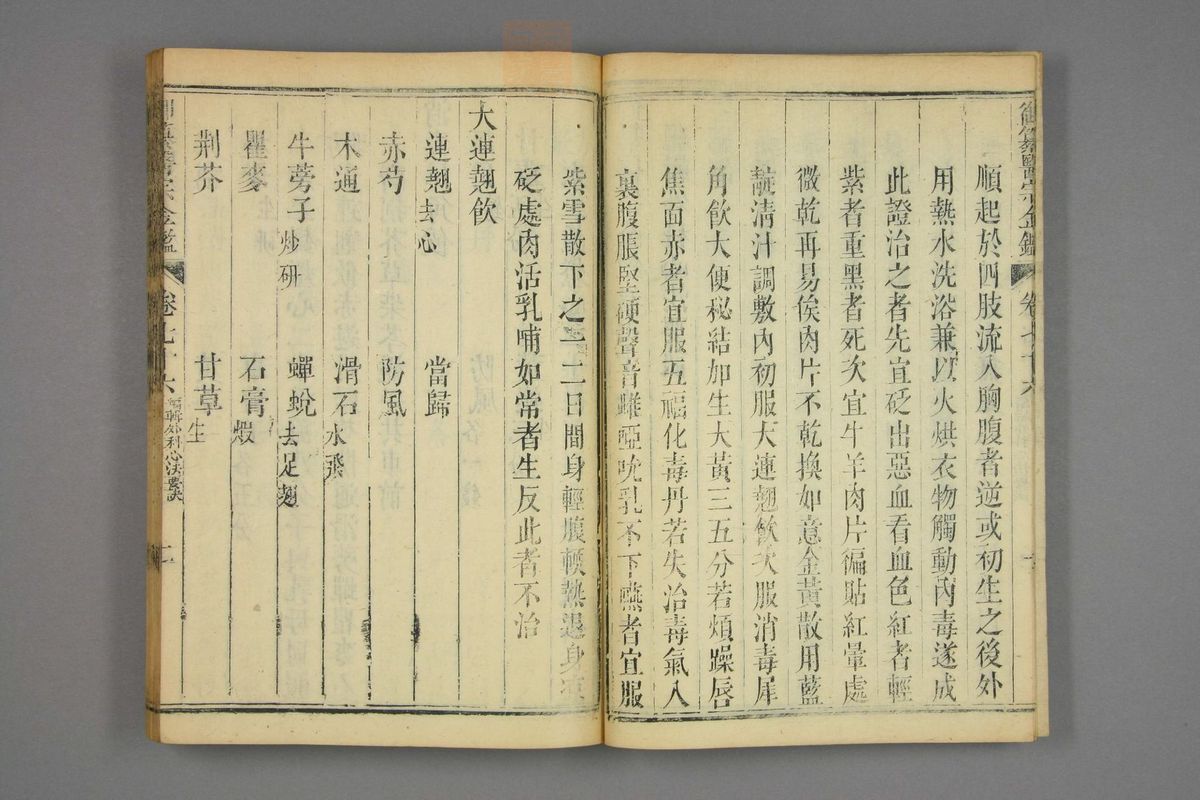 御纂醫宗金鑑 卷七十六 一
順起於四肢流入胸腹者逆或初生之後外
用熱水洗浴兼以火烘衣物觸動內毒遂成
此證治之者先宜砭出惡血看血色紅者輕
紫者重黑者死次宜牛羊肉片徧貼紅暈處
微乾再易俟肉片不乾換如意金黃散用藍
靛清汁調敷內初服大連翹飲次服消毒犀
角飲大便秘結加生大黃三五分若煩躁唇
焦面赤者宜服五福化毒丹若失治毒氣入
裏腹脹堅硬聲音雖啞吮乳不下嚥者宜服
紫雪散下之三二日間身輕腹軟熱退身涼
砭處肉活乳哺如常者生反此者不治
大連翹飲
連翹去心 當歸
赤芍 防風
木通 滑石水飛
牛蒡子炒研 蟬蛻去足翅
瞿麥 石膏煅
荆芥 甘草生
御纂醫宗金鑑 卷七十六 編輯外科心法要訣 二